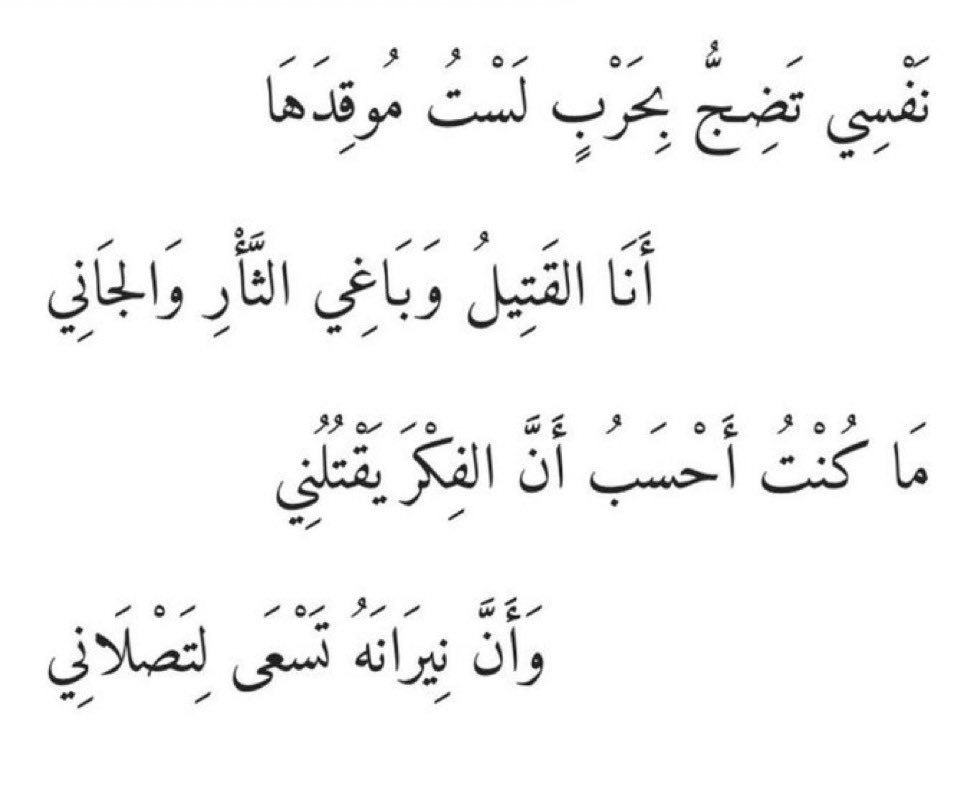 نَفْسِي تَضِجُّ بِحَرْبٍ لَسْتُ مُوقِدَهَا
أَنَا القَتِيلُ وَبَاغِي الثَّأْرِ وَالجَانِي
مَا كُنْتُ أَحْسَبُ أَنَّ الفِكْرَ يَقْتُلُنِي
وَأَنَّ نِيرَانَهُ تَسْعَى لِتَصْلَانِي